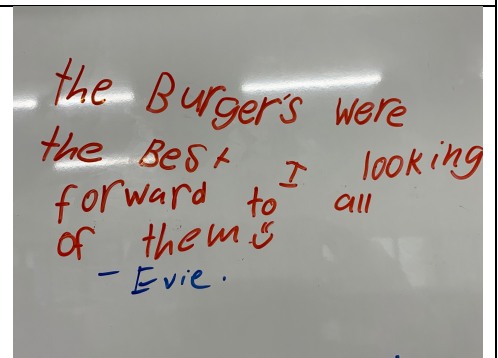 the Burger's were
the Best I looking
forward to all
of them
- Evie.